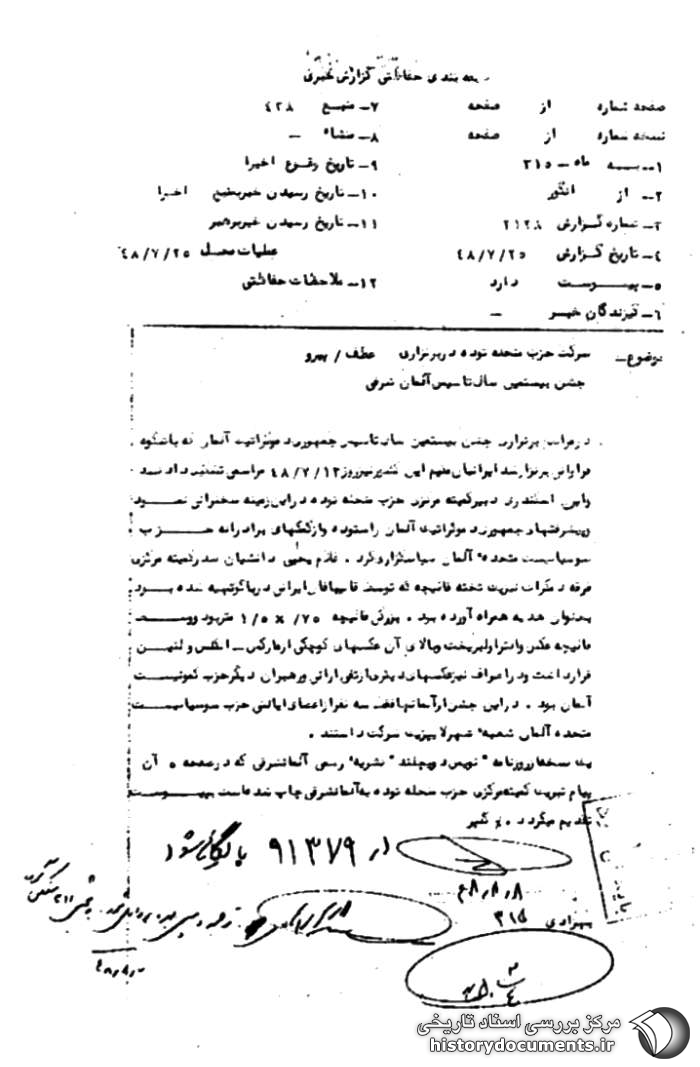 طبقه بندی حفاظتی گزارش خبری
صفحه شماره از صفحه
۷ـ منبع ۴۲۸
نسخه شماره از صفحه
۸ـ منشاء ـ
۱ـ به ماه ـ ۳۱۵
۹ـ تاریخ وقوع اخیرا
۲ـ از
۱۰ـ تاریخ رسیدن خبر بمنبع اخیرا
۳ـ شماره گزارش ۲۱۲۸
۱۱ـ تاریخ رسیدن خبر برهبر
عملیات محل ۴۸/۷/۲۵
۴ـ تاریخ گزارش ۴۸/۷/۲۵
۵ـ پیوست دارد
۱۲ـ ملاحظات حفاظتی
۶ـ گیرندگان خبر ـ
موضوع ـ شرکت حزب منحله توده در برگزاری عطف / پیرو
جشن بیستمین سال تاسیس آلمان شرقی
در مراسم برگزاری جشن بیستمین سال تاسیس جمهوری دموکراتیک آلمان که باشکوه
فراوانی برگزار شد ایرانیان مقیم این کشور نیز روز ۴۸/۷/۱۲ مراسمی تشکیل دادند
اسکندری دبیر کمیته مرکزی حزب منحله توده در این زمینه سخنرانی نمود
و پیشرفتهای جمهوری دموکراتیک آلمان را ستوده و از کمکهای برادرانه حزب
سوسیالیست متحده آلمان سپاسگزاری کرد . غلام یحیی دانشیان صدر کمیته مرکزی
فرقه دمکرات تبریک تخته قالیچه که توسط قالیبافان ایرانی در باکو تهیه شده بود
بعنوان هدیه به همراه آورده بود . بزرگی قالیچه ۱/۵ × /۷۵ متر بود و وسط
قالیچه عکس والتر اولبریخت و بالای آن عکسهای کوچکی از مارکس ـ انگلس و لنین
قرار داشت و در اطراف نیز عکسهای دیگری از تقی ارانی و رهبران دیگر حزب کمونیست
آلمان بود . در این جشن از آلمانها فقط سه نفر از اعضای ایالتی حزب سوسیالیست
متحده آلمان شعبه شهر لایپزیک شرکت داشتند .
یک نسخه از روزنامه " نویس دویچلند " نشریه رسمی آلمان شرقی که در صفحه ۵ آن
پیام تبریک کمیته مرکزی حزب منحله توده به آلمان شرقی چاپ شده است به پیوست
تقدیم میگردد .
در ۹۱۳۷۹ بایگانی شود
۴۸/۸/۸
بهزادی ۳۱۵
مرکز بررسی اسناد تاریخی
historydocuments.ir